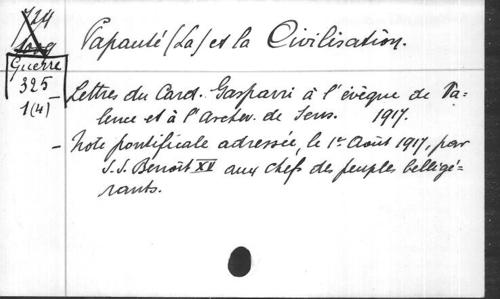 724
Guerre
325
1(4)
Papauté (La) et la Civilisation.
Lettres du Card. Gasparri à l'évêque de Va-
lence et à l'archev. de Sens. 1917.
- Note pontificale adressée, le 1er Août 1917, par
S.S. Benoît XV aux chefs des peuples belligé-
rants.